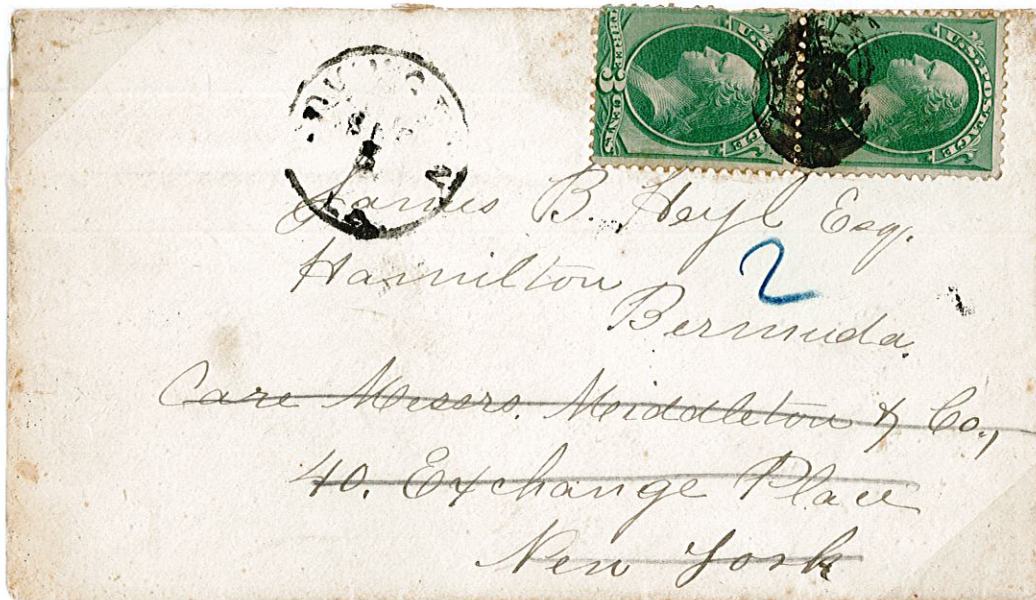 U.S. POSTAGE
James B. Heyl Esq.
Hamilton
2
Bermuda.
Care Messrs. Middleton & Co.,
40. Exchange Place
New York